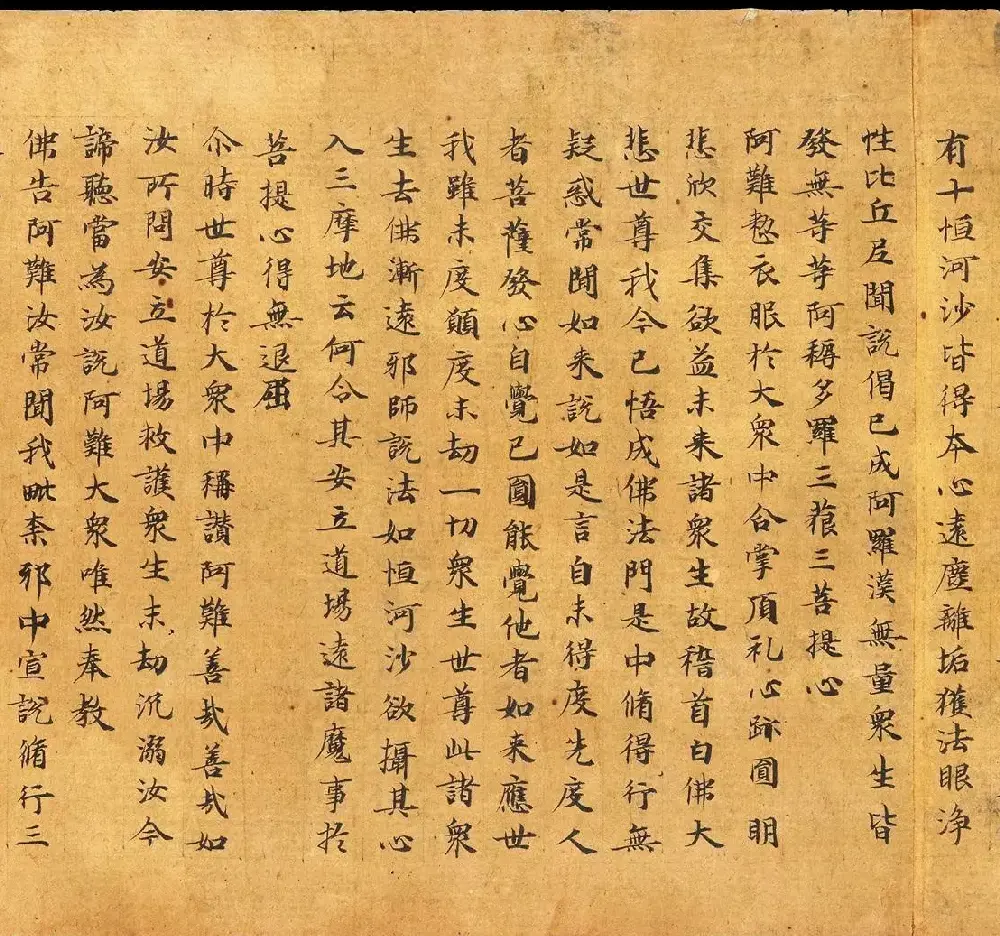 有十恒河沙皆得本心遠塵離垢獲法眼浄
性比丘尼聞說偈已成阿羅漢無量衆生皆
發無等等阿耨多羅三藐三菩提心
阿難整衣服於大衆中合掌頂礼心跡圎明
悲欣交集欲益未来諸衆生故稽首白佛大
悲世尊我今已悟成佛法門是中脩得行無
疑惑常聞如来說如是言自未得度先度人
者菩薩發心自覺已圓能覺他者如来應世
我雖未度願度末劫一切衆生世尊此諸衆
生去佛漸遠邪師說法如恒河沙欲攝其心
入三摩地云何令其安立道場遠諸魔事於
菩提心得無退屈
尒時世尊於大衆中稱讚阿難善哉善哉如
汝所問安立道場救護衆生末劫沉溺汝今
諦聽當為汝說阿難大衆唯然奉教
佛告阿難汝常聞我毗柰耶中宣說脩行三